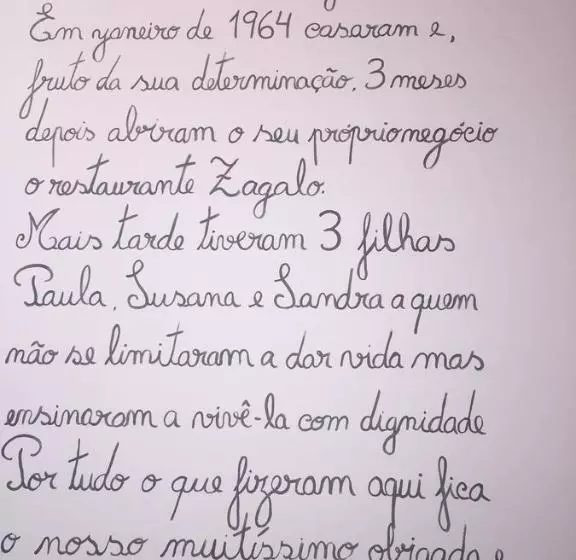 Em yaneiro de 1964 casaram e,
fruto da sua determinação. 3 meses
depois abriram o seu próprio negócio
o restaurante Zagalo.
Mais tarde tiveram 3 filhas
Paula, Susana e Sandra a quem
não se limitaram a dar vida mas
ensinaram a vivê-la com dignidade
Por tudo o que fizeram aqui fica
o nosso muitíssimo obrigado e